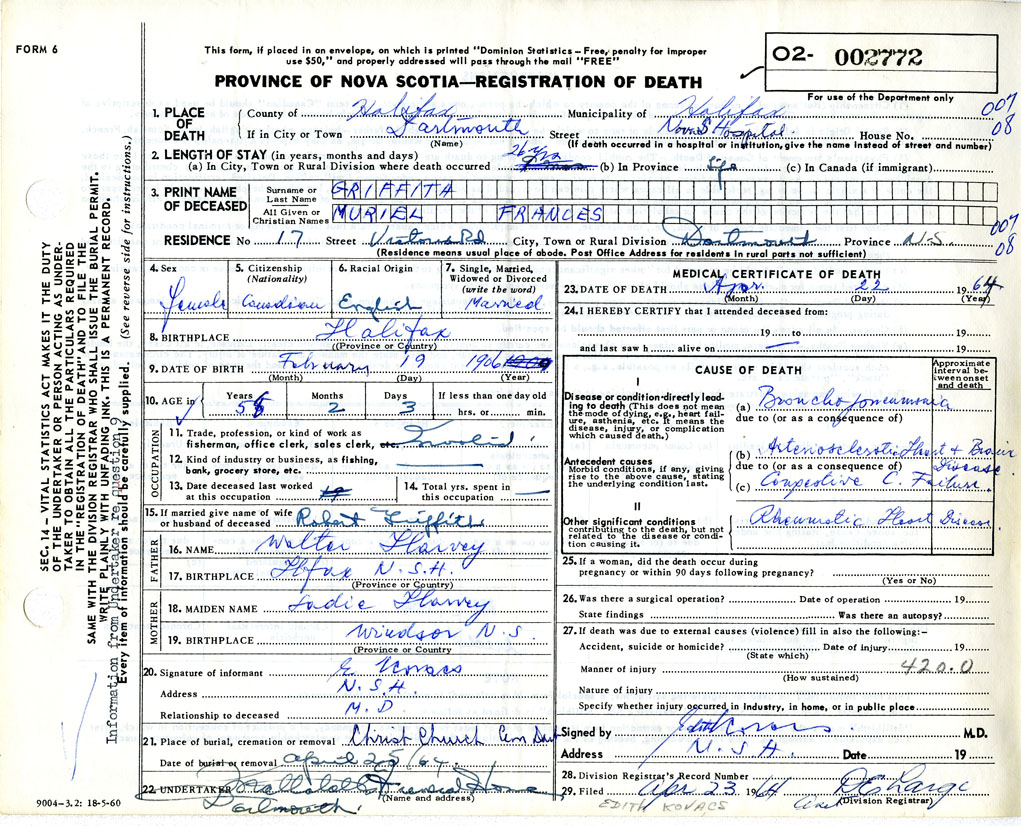 FORM 6
This form, if placed in an envelope, on which is printed "Dominion Statistics – Free, penalty for improper
use $50," and properly addressed will pass through the mail "FREE"
PROVINCE OF NOVA SCOTIA—REGISTRATION OF DEATH
O2- 002772
For use of the Department only
1. PLACE OF DEATH
County of Halifax Municipality of Halifax
007
08
If in City or Town Dartmouth Street Nova S Hospital House No.
(Name) (If death occurred in a hospital or institution, give the name instead of street and number)
2. LENGTH OF STAY (in years, months and days)
(a) In City, Town or Rural Division where death occurred 26 yrs (b) In Province life (c) In Canada (if immigrant)
3. PRINT NAME OF DECEASED
Surname or Last Name GRIFFITH
All Given or Christian Names MURIEL FRANCES
RESIDENCE No 17 Street Victoria Rd City, Town or Rural Division Dartmouth Province N.S.
007
08
(Residence means usual place of abode. Post Office Address for residents in rural parts not sufficient)
4. Sex
Female
5. Citizenship (Nationality)
Canadian
6. Racial Origin
English
7. Single, Married, Widowed or Divorced (write the word)
Married
8. BIRTHPLACE Halifax
(Province or Country)
9. DATE OF BIRTH February 19 1906
(Month) (Day) (Year)
10. AGE in Years 58 Months 2 Days 3 If less than one day old
hrs. or min.
OCCUPATION
11. Trade, profession or kind of work as
fisherman, office clerk, sales clerk, etc.
12. Kind of industry or business, as fishing,
bank, grocery store, etc.
13. Date deceased last worked
at this occupation 19
14. Total yrs. spent in
this occupation
15. If married give name of wife
or husband of deceased Robert Griffith
FATHER
16. NAME Walter Harvey
17. BIRTHPLACE Hfax N.S.H.
(Province or Country)
MOTHER
18. MAIDEN NAME Sadie Harvey
19. BIRTHPLACE Windsor N.S.
(Province or Country)
20. Signature of informant E. Kovacs
Address N.S.H.
Relationship to deceased M.D.
21. Place of burial, cremation or removal Christ Church Cem Dart
Date of burial or removal April 25/64
22. UNDERTAKER Funeral Home
(Name and address)
Dartmouth
9004-3.2: 18-5-60
MEDICAL CERTIFICATE OF DEATH
23. DATE OF DEATH Apr. 22 1964
(Month) (Day) (Year)
24. I HEREBY CERTIFY that I attended deceased from:
19 to 19
and last saw h alive on 19
CAUSE OF DEATH
Approximate interval between onset and death
I
Disease or condition directly leading to death (This does not mean the mode of dying, e.g., heart failure, asthenia, etc. It means the disease, injury, or complication which caused death.)
(a) Bronchopneumonia
due to (or as a consequence of)
Antecedent causes
Morbid conditions, if any, giving rise to the above cause, stating the underlying condition last.
(b) Arteriosclerotic Heart & Brain Disease
due to (or as a consequence of)
(c) Congestive C. Failure
II
Other significant conditions
contributing to the death, but not related to the disease or condition causing it.
Rheumatic Heart Disease
25. If a woman, did the death occur during
pregnancy or within 90 days following pregnancy?
(Yes or No)
26. Was there a surgical operation? Date of operation 19
State findings Was there an autopsy?
27. If death was due to external causes (violence) fill in also the following:–
Accident, suicide or homicide? Date of injury 19
(State which)
Manner of injury 420.0
(How sustained)
Nature of injury
Specify whether injury occurred in industry, in home, or in public place
Signed by Edith Kovacs M.D.
Address N.S.H. Date 19
28. Division Registrar's Record Number
29. Filed Apr 23 1964
(Division Registrar)
EDITH KOVACS
SEC. 14 – VITAL STATISTICS ACT MAKES IT THE DUTY
OF THE UNDERTAKER OR PERSON ACTING AS UNDERTAKER TO OBTAIN ALL THE PARTICULARS REQUIRED
IN THE "REGISTRATION OF DEATH" AND TO FILE THE
SAME WITH THE DIVISION REGISTRAR WHO SHALL ISSUE THE BURIAL PERMIT.
WRITE PLAINLY WITH UNFADING INK. THIS IS A PERMANENT RECORD.
Every item of information should be carefully supplied. (See reverse side for instructions.)
Information from Undertaker re Question 9